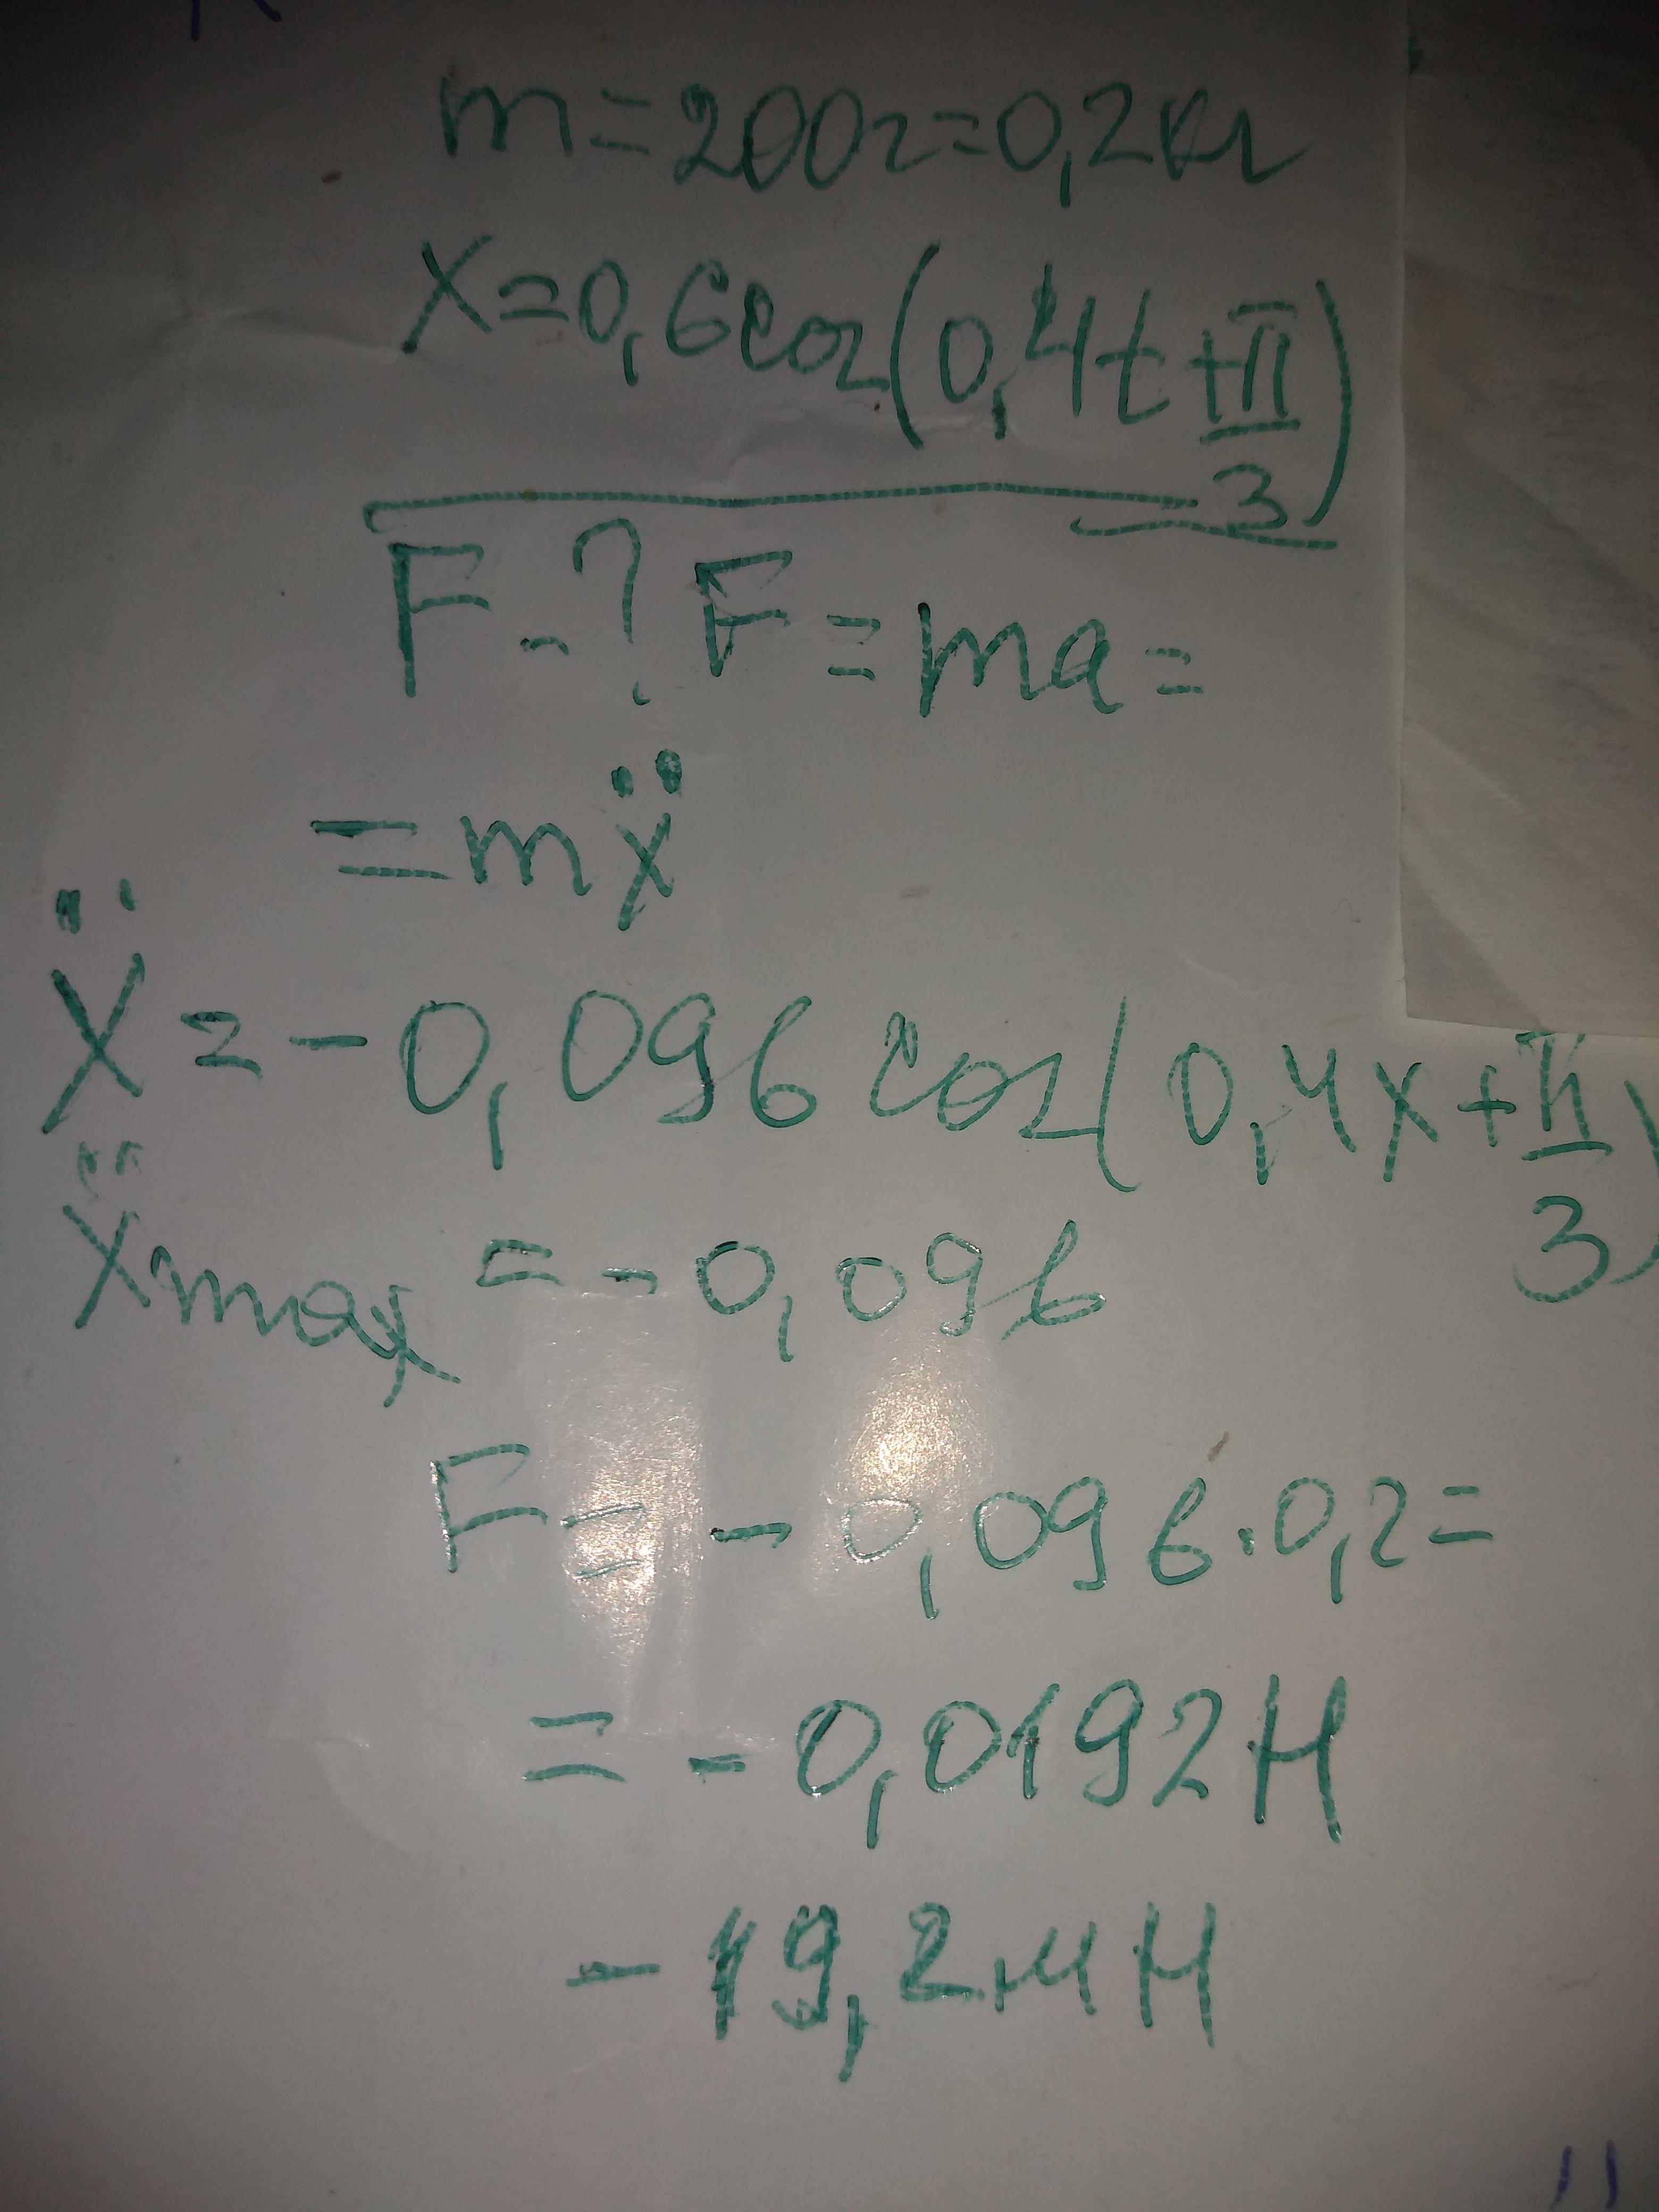 m=200г=0,2кг
x=0,6cos(0,4t+π/3)
F-? F=ma=
=mẍ
ẍ=-0,096cos(0,4x+π/3)
ẍmax=-0,096
F=-0,096·0,2=
=-0,0192Н
-19,2мН